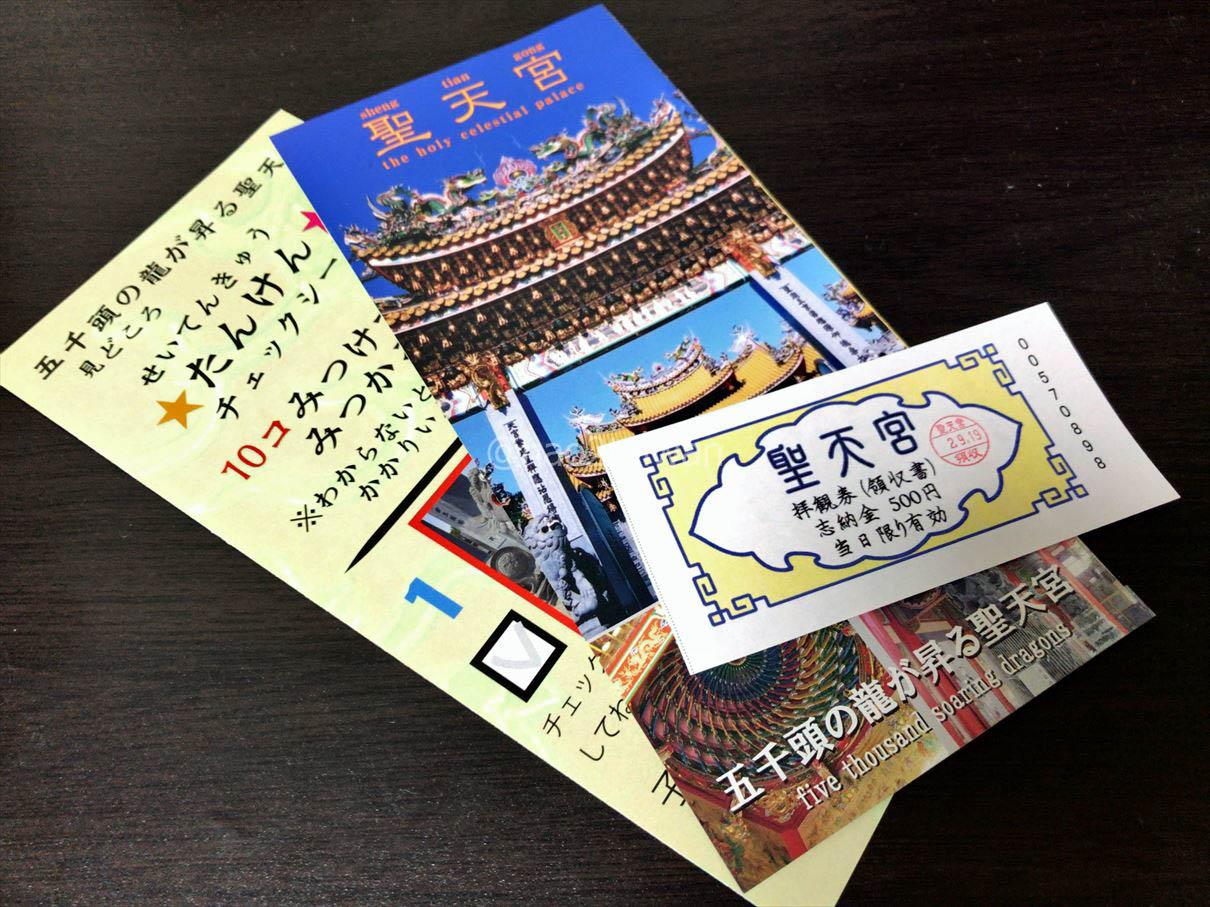 五千頭の龍が昇る聖天
見どころ
せいてんきゅう
たんけん
チェックシー
10コみつけ
みつか
※わからないと
かかりい
1
チェック
してね
sheng tian gong
聖天宮
the holy celestial palace
聖天宮
拝観券(領収書)
志納金 500円
当日限り有効
聖天宮
2.9.19
領収
00570898
五千頭の龍が昇る聖天宮
five thousand soaring dragons